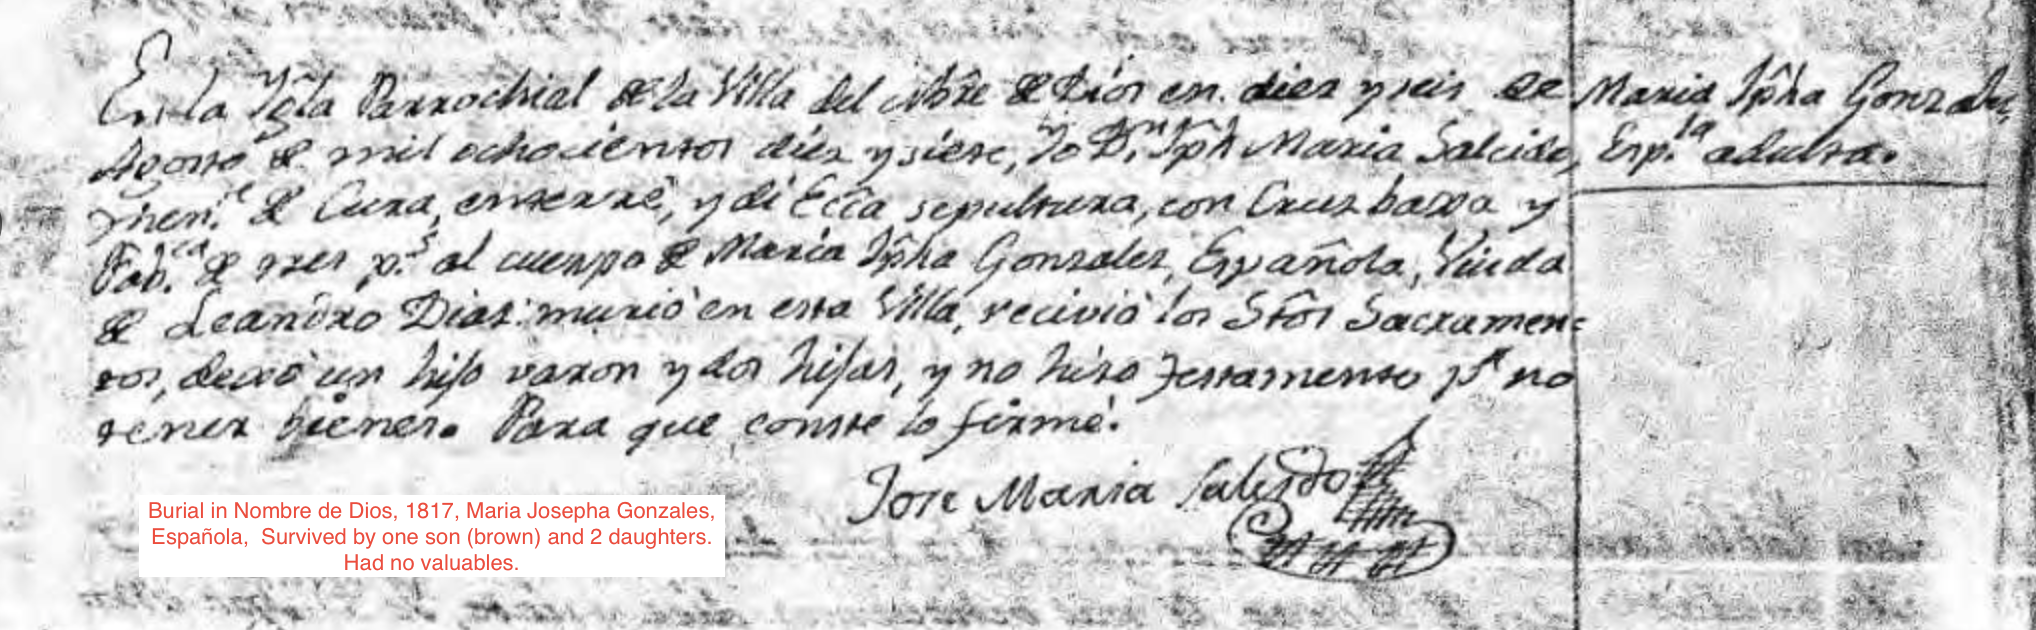 En la Ygła Parrochial de la Villa del Nõre de Dios en diez y seis de
Agosto de mil ochocientos diez y siete, Yo D.n Jph Maria Salcido,
then.te de Cura, enterré, y dí Ecc̃a sepultura, con Cruz baxa y
Fab.ca de tres p.s al cuerpo de Maria Jp̃ha Gonzales, Española, Viuda
de Leandro Dias: murió en esta Villa, recivió los Stõs Sacramen=
tos, dexó un hijo varon y dos hijas, y no hizo Testamento p.r no
tener bienes. Para que conste lo firmé.
Jose Maria Salcido
Maria Jp̃ha Gonzales,
Esp.la adulta.
Burial in Nombre de Dios, 1817, Maria Josepha Gonzales,
Española, Survived by one son (brown) and 2 daughters.
Had no valuables.